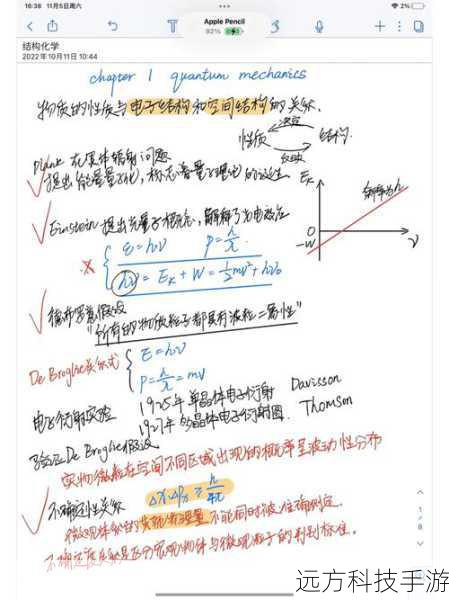 16:38 11月5日周六
Apple Pencil
92%
2%
结构化学
2022年10月11日 10:44
chapter 1 quantum mechanics
物质的性质与电子结构和空间结构的关系.
决定
性质 结构.
反映
Plank 在黑体辐射问题
提出能量量子化, 标志着量子理论的诞生
Einstein 提出光量子概念, 解释了光电效应
ε=hν P=h/λ
hν = Ek + W = ½mv² + hν₀
Ek
斜率为h
0
-W
ν
德布罗意假设
"所有的物质粒子都具有波粒二象性"
De Broglie关系式
E=hν
P=h/λ=mv
电子衍射实验
单晶体电子衍射 Davisson
1927年多晶体电子衍射图. Thomson
验证De Broglie假设
实物微粒在空间不同区域出现的概率呈波动性分布
不确定性关系
Δx·ΔPx ≥ h/4π
微观体系的 物理量不能同时被准确测定.
不确定度关系是区分宏观物体与微观粒子的判别标准.
1
/
8
远方科技手游